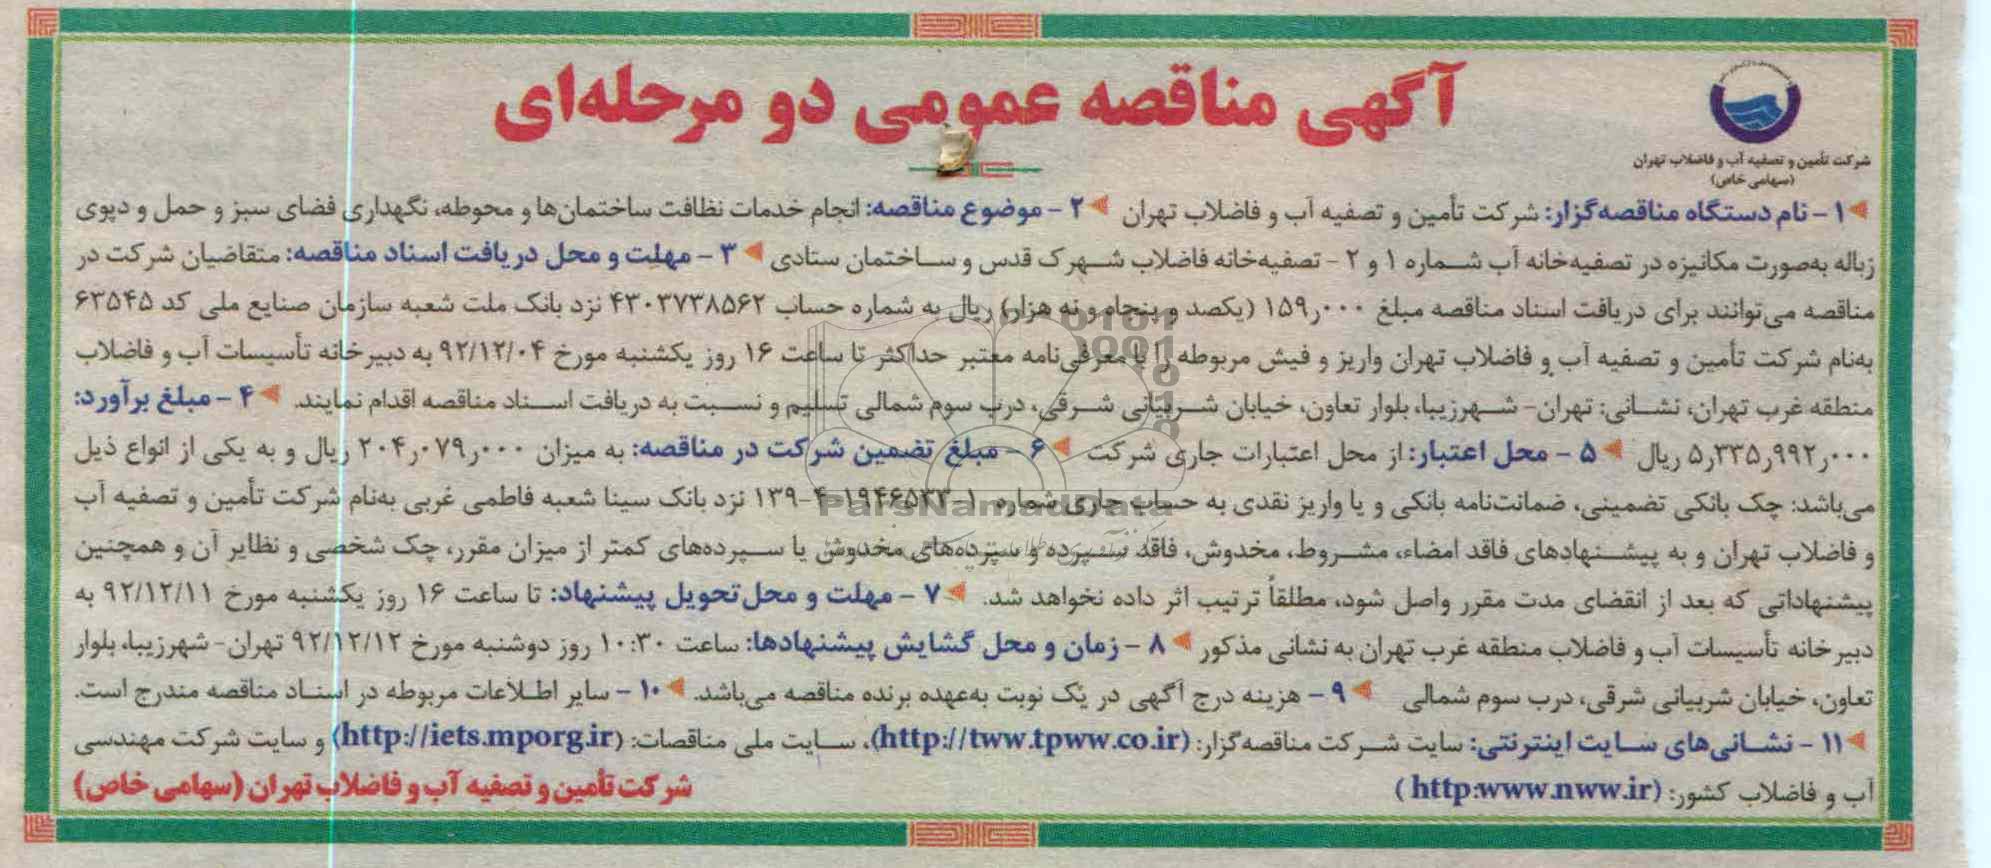 آگهی مناقصه عمومی دو مرحله‌ای
شرکت تأمین و تصفیه آب و فاضلاب تهران
(سهامی خاص)
۱- نام دستگاه مناقصه‌گزار: شرکت تأمین و تصفیه آب و فاضلاب تهران ۲- موضوع مناقصه: انجام خدمات نظافت ساختمان‌ها و محوطه، نگهداری فضای سبز و حمل و دپوی
زباله به‌صورت مکانیزه در تصفیه‌خانه آب شماره ۱ و ۲ - تصفیه‌خانه فاضلاب شهرک قدس و ساختمان ستادی ۳- مهلت و محل دریافت اسناد مناقصه: متقاضیان شرکت در
مناقصه می‌توانند برای دریافت اسناد مناقصه مبلغ ۱۵۹٫۰۰۰ (یکصد و پنجاه و نه هزار) ریال به شماره حساب ۴۳۰۳۷۳۸۵۶۲ نزد بانک ملت شعبه سازمان صنایع ملی کد ۶۳۵۴۵
به‌نام شرکت تأمین و تصفیه آب و فاضلاب تهران واریز و فیش مربوطه را با معرفی‌نامه معتبر حداکثر تا ساعت ۱۶ روز یکشنبه مورخ ۹۲/۱۲/۰۴ به دبیرخانه تأسیسات آب و فاضلاب
منطقه غرب تهران، نشانی: تهران- شهرزیبا، بلوار تعاون، خیابان شربیانی شرقی، درب سوم شمالی تسلیم و نسبت به دریافت اسناد مناقصه اقدام نمایند. ۴- مبلغ برآورد:
۵٫۳۳۵٫۹۹۲٫۰۰۰ ریال ۵- محل اعتبار: از محل اعتبارات جاری شرکت ۶- مبلغ تضمین شرکت در مناقصه: به میزان ۲۰۴٫۰۷۹٫۰۰۰ ریال و به یکی از انواع ذیل
می‌باشد: چک بانکی تضمینی، ضمانت‌نامه بانکی و یا واریز نقدی به حساب جاری شماره نزد بانک سینا شعبه فاطمی غربی به‌نام شرکت تأمین و تصفیه آب
و فاضلاب تهران و به پیشنهادهای فاقد امضاء، مشروط، مخدوش، فاقد سپرده و سپرده‌های مخدوش یا سپرده‌های کمتر از میزان مقرر، چک شخصی و نظایر آن و همچنین
پیشنهاداتی که بعد از انقضای مدت مقرر واصل شود، مطلقاً ترتیب اثر داده نخواهد شد. ۷- مهلت و محل تحویل پیشنهاد: تا ساعت ۱۶ روز یکشنبه مورخ ۹۲/۱۲/۱۱ به
دبیرخانه تأسیسات آب و فاضلاب منطقه غرب تهران به نشانی مذکور ۸- زمان و محل گشایش پیشنهادها: ساعت ۱۰:۳۰ روز دوشنبه مورخ ۹۲/۱۲/۱۲ تهران- شهرزیبا، بلوار
تعاون، خیابان شربیانی شرقی، درب سوم شمالی ۹- هزینه درج آگهی در یک نوبت به‌عهده برنده مناقصه می‌باشد. ۱۰- سایر اطلاعات مربوطه در اسناد مناقصه مندرج است.
۱۱- نشانی‌های سایت اینترنتی: سایت شرکت مناقصه‌گزار: (http://tww.tpww.co.ir)، سایت ملی مناقصات: (http://iets.mporg.ir) و سایت شرکت مهندسی
آب و فاضلاب کشور: (http:www.nww.ir)
شرکت تأمین و تصفیه آب و فاضلاب تهران (سهامی خاص)
ParsNamadData